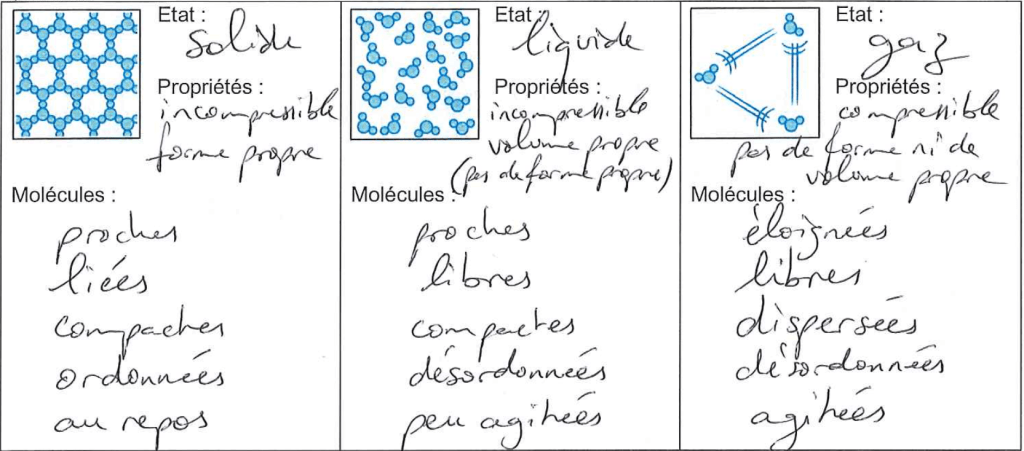 Etat :
solide
Propriétés :
incompressible
forme propre
Molécules :
proches
liées
compactes
ordonnées
au repos
Etat :
liquide
Propriétés :
incompressible
volume propre
(pas de forme propre)
Molécules :
proches
libres
compactes
désordonnées
peu agitées
Etat :
gaz
Propriétés :
compressible
pas de forme ni de
volume propre
Molécules :
éloignées
libres
dispersées
désordonnées
agitées